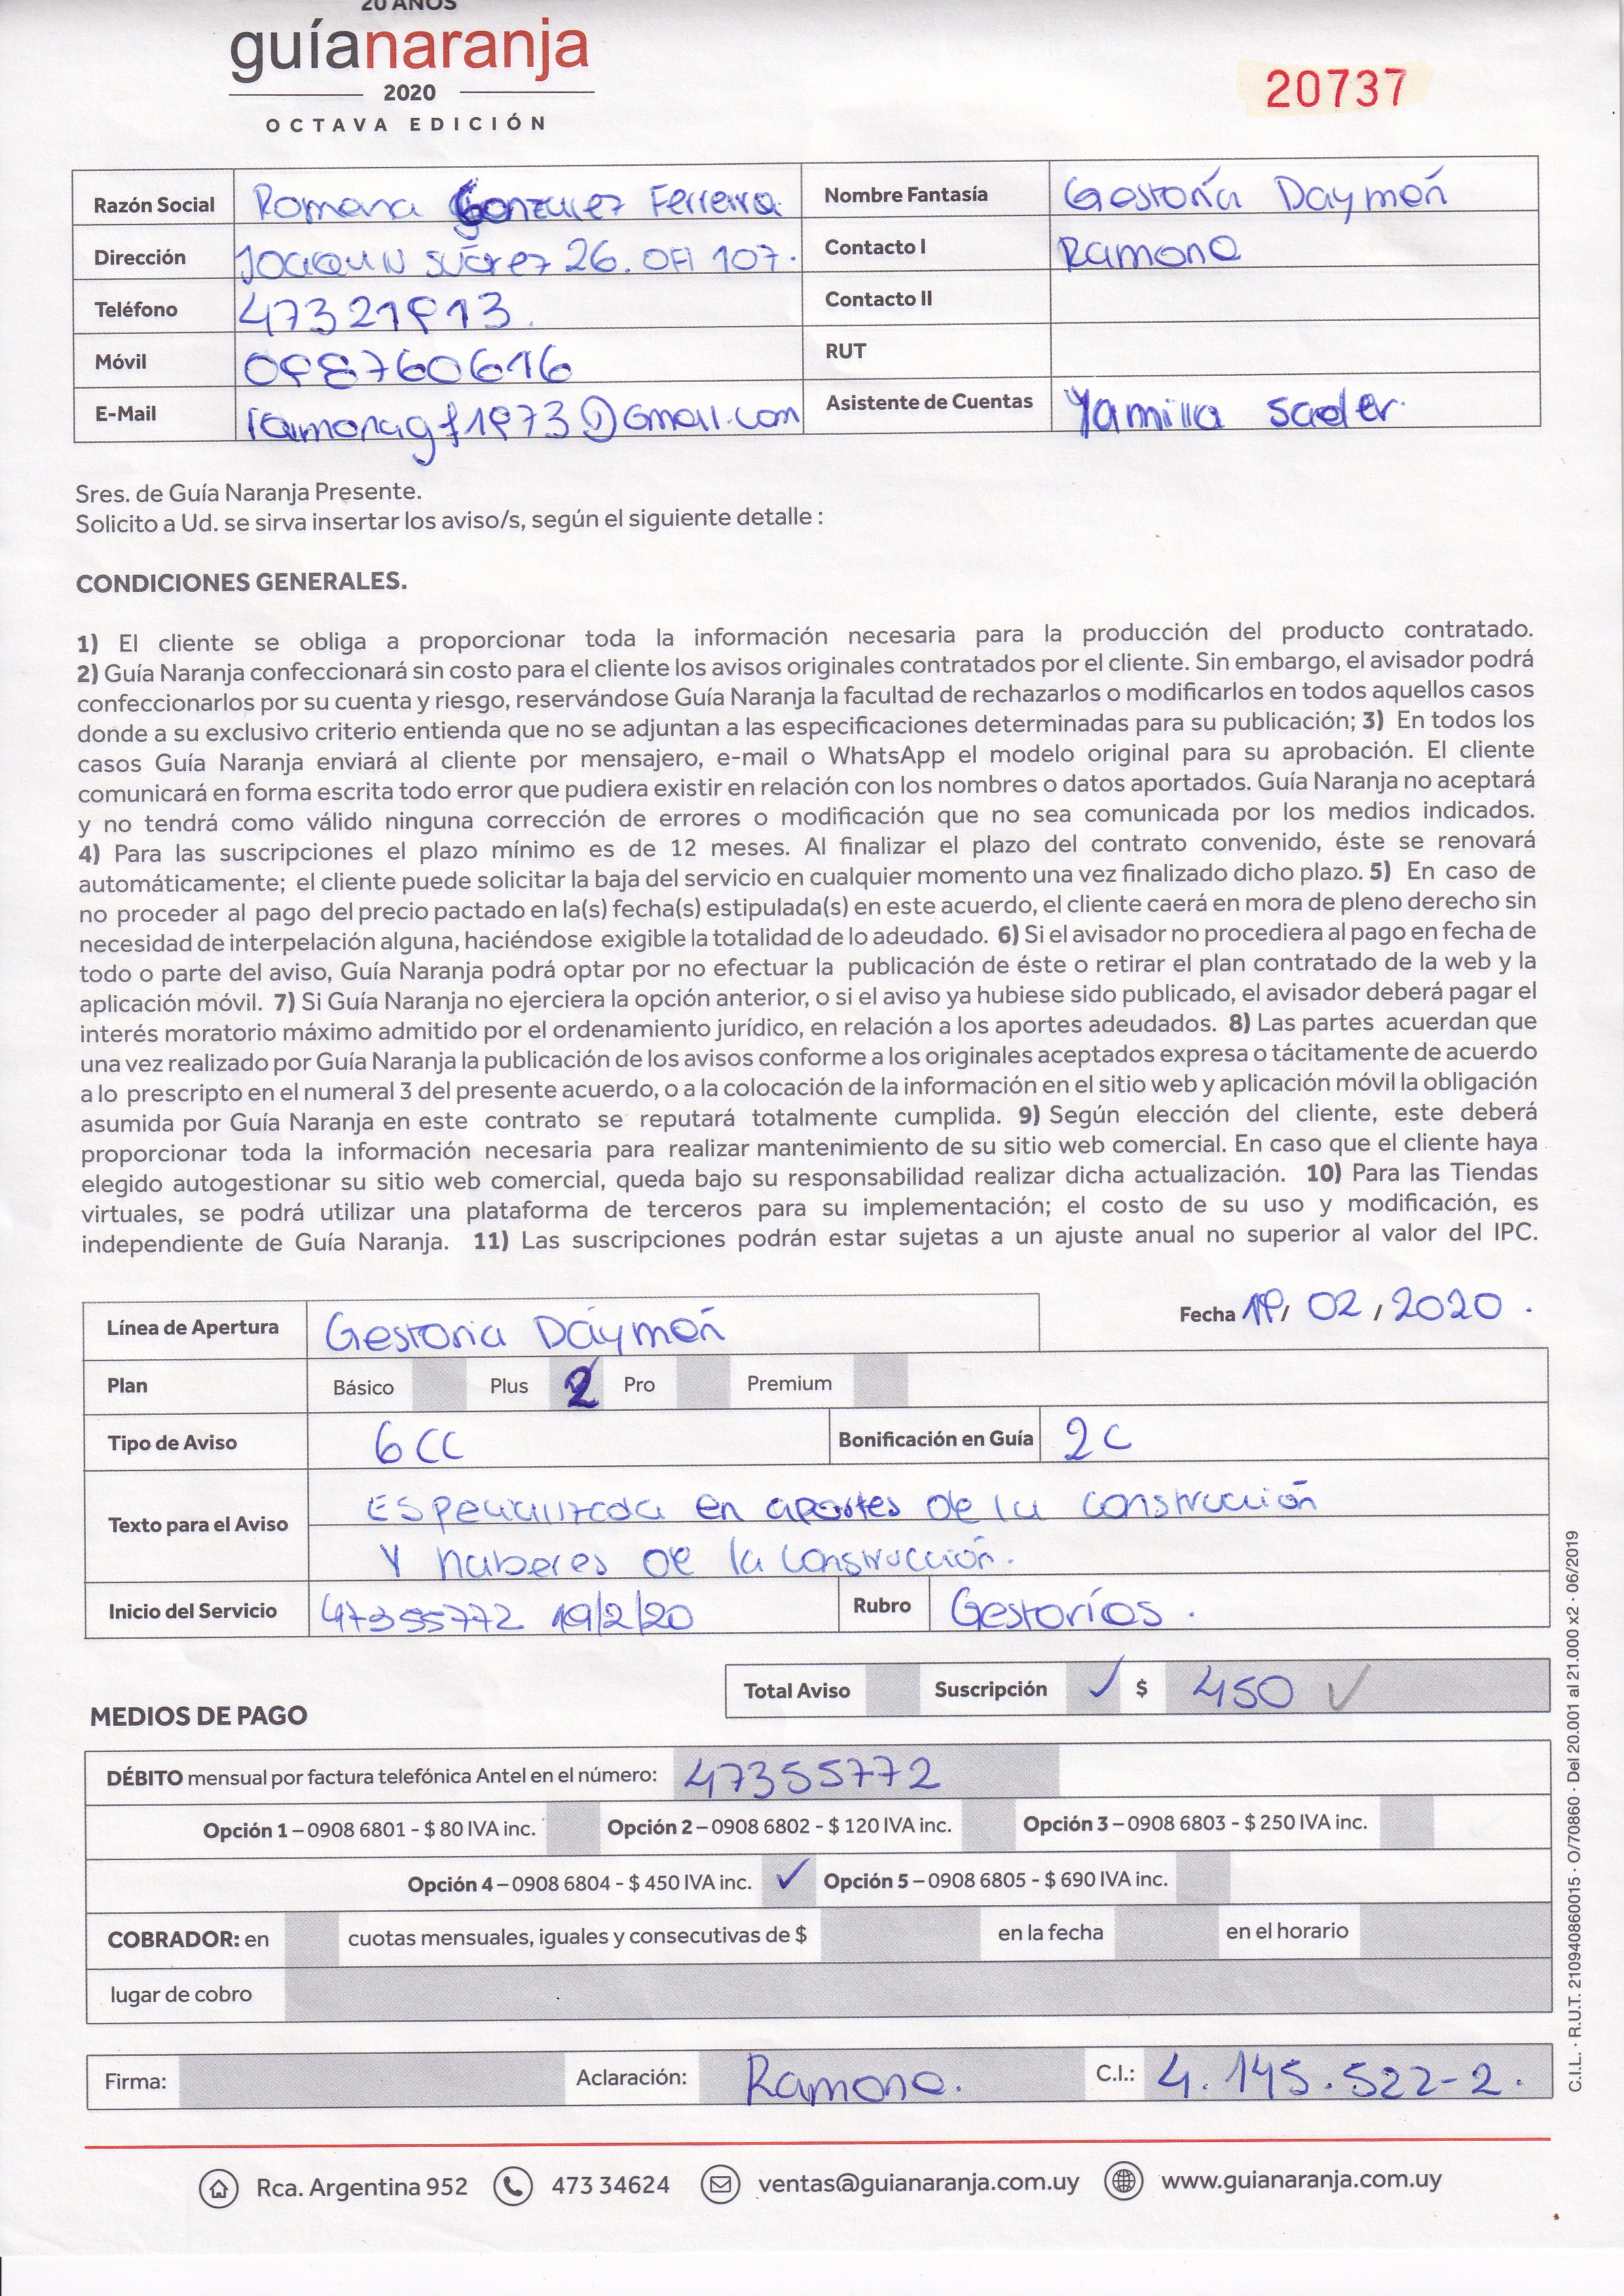 20 AÑOS
guíanaranja
2020
OCTAVA EDICIÓN
20737
Razón Social Romana Gonzalez Ferreira Nombre Fantasía Gestoría Daymán
Dirección Joaquin Suárez 26. OFI 107. Contacto I Ramona
Teléfono 47321913. Contacto II
Móvil 098760616 RUT
E-Mail ramonagf1973@Gmail.com Asistente de Cuentas Yamilla Sader.
Sres. de Guía Naranja Presente.
Solicito a Ud. se sirva insertar los aviso/s, según el siguiente detalle :
CONDICIONES GENERALES.
1) El cliente se obliga a proporcionar toda la información necesaria para la producción del producto contratado.
2) Guía Naranja confeccionará sin costo para el cliente los avisos originales contratados por el cliente. Sin embargo, el avisador podrá
confeccionarlos por su cuenta y riesgo, reservándose Guía Naranja la facultad de rechazarlos o modificarlos en todos aquellos casos
donde a su exclusivo criterio entienda que no se adjuntan a las especificaciones determinadas para su publicación; 3) En todos los
casos Guía Naranja enviará al cliente por mensajero, e-mail o WhatsApp el modelo original para su aprobación. El cliente
comunicará en forma escrita todo error que pudiera existir en relación con los nombres o datos aportados. Guía Naranja no aceptará
y no tendrá como válido ninguna corrección de errores o modificación que no sea comunicada por los medios indicados.
4) Para las suscripciones el plazo mínimo es de 12 meses. Al finalizar el plazo del contrato convenido, éste se renovará
automáticamente; el cliente puede solicitar la baja del servicio en cualquier momento una vez finalizado dicho plazo. 5) En caso de
no proceder al pago del precio pactado en la(s) fecha(s) estipulada(s) en este acuerdo, el cliente caerá en mora de pleno derecho sin
necesidad de interpelación alguna, haciéndose exigible la totalidad de lo adeudado. 6) Si el avisador no procediera al pago en fecha de
todo o parte del aviso, Guía Naranja podrá optar por no efectuar la publicación de éste o retirar el plan contratado de la web y la
aplicación móvil. 7) Si Guía Naranja no ejerciera la opción anterior, o si el aviso ya hubiese sido publicado, el avisador deberá pagar el
interés moratorio máximo admitido por el ordenamiento jurídico, en relación a los aportes adeudados. 8) Las partes acuerdan que
una vez realizado por Guía Naranja la publicación de los avisos conforme a los originales aceptados expresa o tácitamente de acuerdo
a lo prescripto en el numeral 3 del presente acuerdo, o a la colocación de la información en el sitio web y aplicación móvil la obligación
asumida por Guía Naranja en este contrato se reputará totalmente cumplida. 9) Según elección del cliente, este deberá
proporcionar toda la información necesaria para realizar mantenimiento de su sitio web comercial. En caso que el cliente haya
elegido autogestionar su sitio web comercial, queda bajo su responsabilidad realizar dicha actualización. 10) Para las Tiendas
virtuales, se podrá utilizar una plataforma de terceros para su implementación; el costo de su uso y modificación, es
independiente de Guía Naranja. 11) Las suscripciones podrán estar sujetas a un ajuste anual no superior al valor del IPC.
Fecha 19/ 02 / 2020 .
Línea de Apertura Gestoria Daymán
Plan Básico Plus 2 Pro Premium
Tipo de Aviso 6CC Bonificación en Guía 2C
Texto para el Aviso Especializada en aportes de la construcción
Y haberes de la construcción.
Inicio del Servicio 47355772 19/2/20 Rubro Gestorías .
Total Aviso Suscripción ✓ $ 450 ✓
MEDIOS DE PAGO
DÉBITO mensual por factura telefónica Antel en el número: 47355772
Opción 1 – 0908 6801 - $ 80 IVA inc. Opción 2 – 0908 6802 - $ 120 IVA inc. Opción 3 – 0908 6803 - $ 250 IVA inc.
Opción 4 – 0908 6804 - $ 450 IVA inc. ✓ Opción 5 – 0908 6805 - $ 690 IVA inc.
COBRADOR: en cuotas mensuales, iguales y consecutivas de $ en la fecha en el horario
lugar de cobro
Firma: Aclaración: Ramona. C.I.: 4.145.522-2.
Rca. Argentina 952 473 34624 ventas@guianaranja.com.uy www.guianaranja.com.uy
C.I.L. · R.U.T. 210940860015 · O/70860 · Del 20.001 al 21.000 x2 · 06/2019